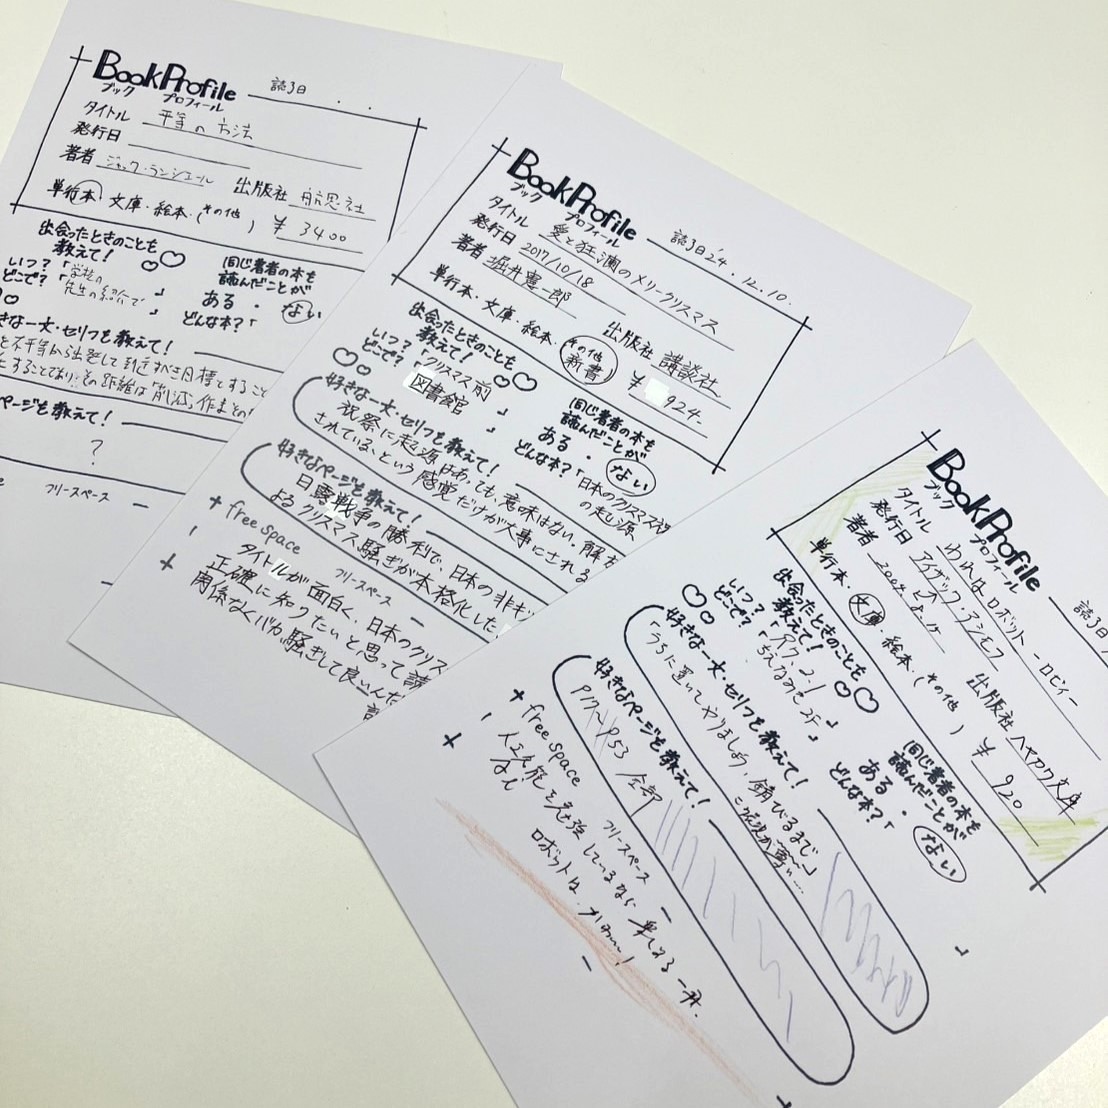 Book Profile
ブック プロフィール
読了日 . .
タイトル 平等の方法
発行日
著者 ジャック・ランシエール 出版社 航思社
単行本・文庫・絵本・(その他 ) ¥ 3400
出会ったときのことも教えて!
いつ?「学校の
どこで? 先生の紹介で」
同じ著者の本を
読んだことが
ある・ない
どんな本?「
きな一文・セリフを教えて!
不平等から出発して到達すべき目標とすること
することであり、その距離は「削減」
ページを教えて!
?
フリースペース
Book Profile
ブック プロフィール
読了日 '24.12.10.
タイトル 愛と狂瀾のメリークリスマス
発行日 2017/10/18
著者 堀井憲一郎 出版社 講談社
単行本・文庫・絵本・(その他 新書) ¥ 924
出会ったときのことも教えて!
いつ?「クリスマス前
どこで? 図書館」
同じ著者の本を
読んだことが
ある・ない
どんな本?「日本のクリスマスの
の起源
好きな一文・セリフを教えて!
祝祭に起源はあっても、意味はない。解放
されている、という感覚だけが大事にされる
好きなページを教えて!
日露戦争の勝利で、日本の非キ
よるクリスマス騒ぎが本格化した
free space フリースペース
タイトルが面白く、日本のクリス
正確に知りたいと思って読
関係なくバカ騒ぎして良いんだ
Book Profile
ブック プロフィール
読了日
タイトル われはロボット - ロビィー
発行日 2004.8.
著者 アイザック・アシモフ 出版社 ハヤカワ文庫
単行本・文庫・絵本・(その他 ) ¥ 920
出会ったときのことも教えて!
いつ?
どこで?
同じ著者の本を
読んだことが
ある・ない
どんな本?「
好きな一文・セリフを教えて!
「うちに置いてやりましょう、錆びるまで」
好きなページを教えて!
P17〜P53 全部
free space フリースペース
人工知能を勉強しているなら楽しめる一冊。
ロボットは